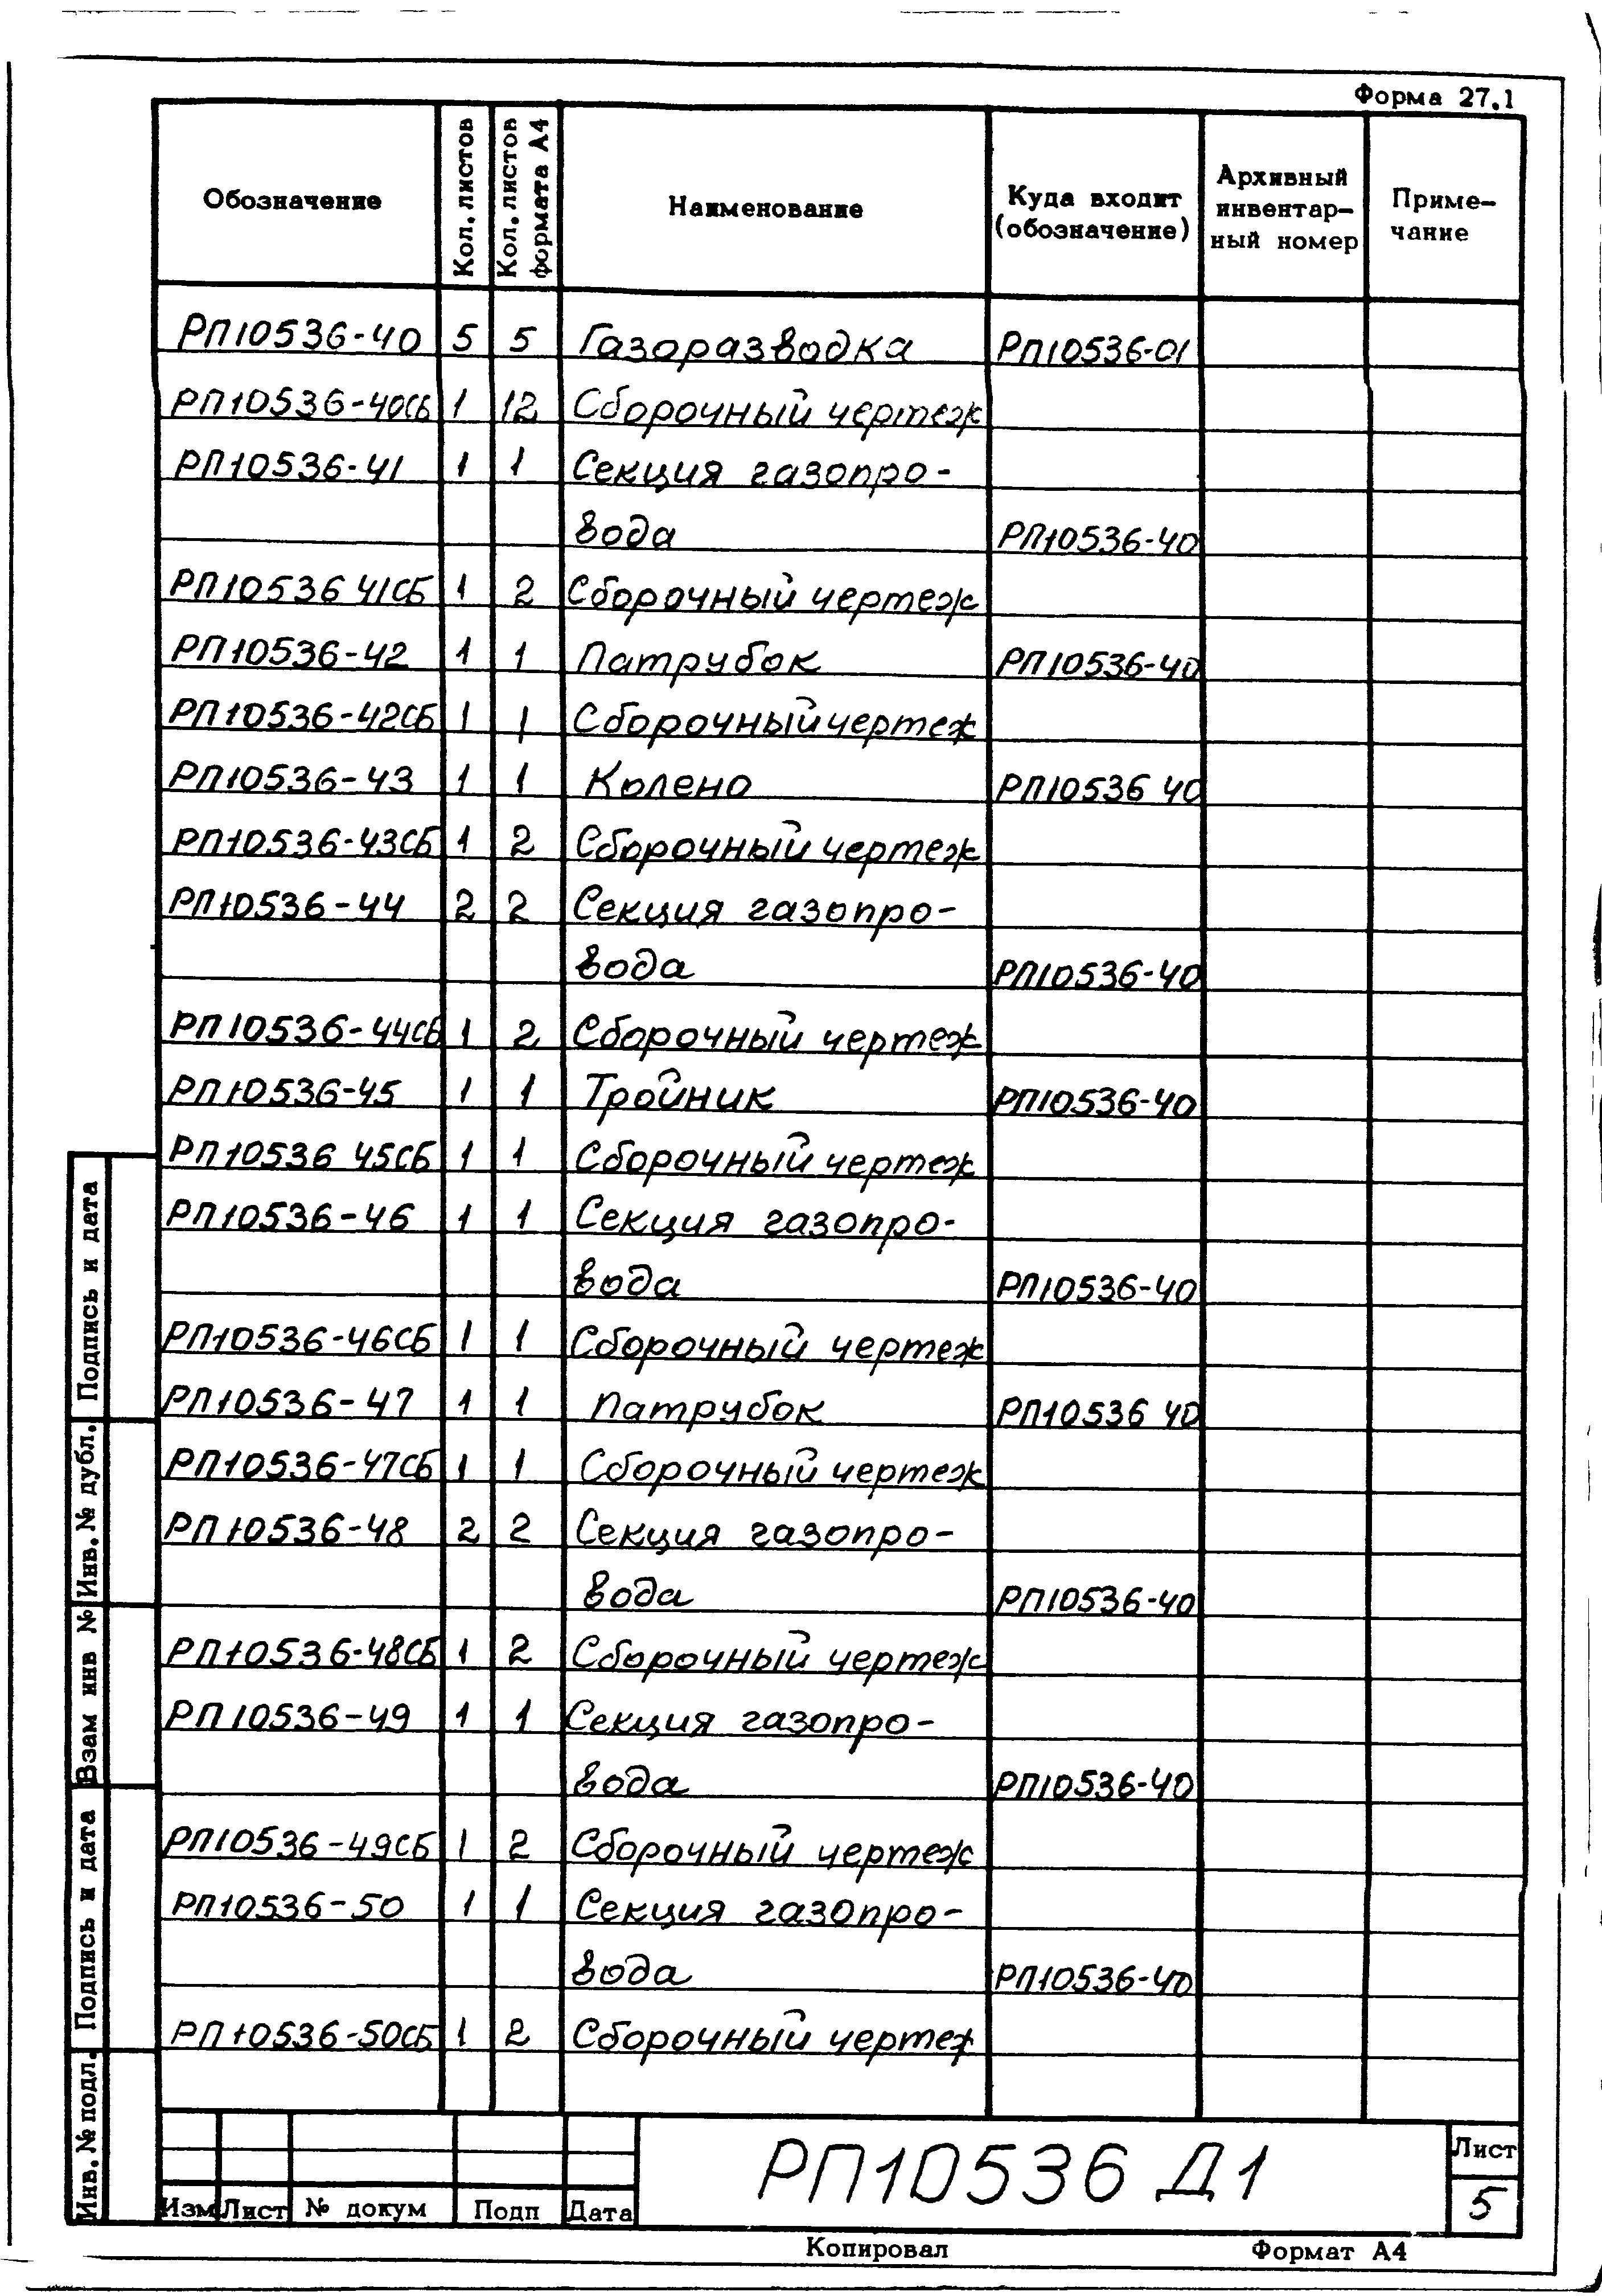 Форма 27.1
Обозначение Кол. листов Кол. листов формата А4 Наименование Куда входит (обозначение) Архивный инвентар-ный номер Приме-чание
РП10536-40 5 5 Газоразводка РП10536-01
РП10536-40СБ 1 12 Сборочный чертеж
РП10536-41 1 1 Секция газопро-
вода РП10536-40
РП10536 41СБ 1 2 Сборочный чертеж
РП10536-42 1 1 Патрубок РП10536-40
РП10536-42СБ 1 1 Сборочный чертеж
РП10536-43 1 1 Колено РП10536 40
РП10536-43СБ 1 2 Сборочный чертеж
РП10536-44 2 2 Секция газопро-
вода РП10536-40
РП10536-44СБ 1 2 Сборочный чертеж
РП10536-45 1 1 Тройник РП10536-40
РП10536 45СБ 1 1 Сборочный чертеж
РП10536-46 1 1 Секция газопро-
вода РП10536-40
РП10536-46СБ 1 1 Сборочный чертеж
РП10536-47 1 1 Патрубок РП10536 40
РП10536-47СБ 1 1 Сборочный чертеж
РП10536-48 2 2 Секция газопро-
вода РП10536-40
РП10536-48СБ 1 2 Сборочный чертеж
РП10536-49 1 1 Секция газопро-
вода РП10536-40
РП10536-49СБ 1 2 Сборочный чертеж
РП10536-50 1 1 Секция газопро-
вода РП10536-40
РП10536-50СБ 1 2 Сборочный чертеж
Подпись и дата
Инв. № дубл.
Взам инв №
Подпись и дата
Инв. № подл.
Изм Лист № докум Подп Дата
РП10536 Д1
Лист
5
Копировал Формат А4